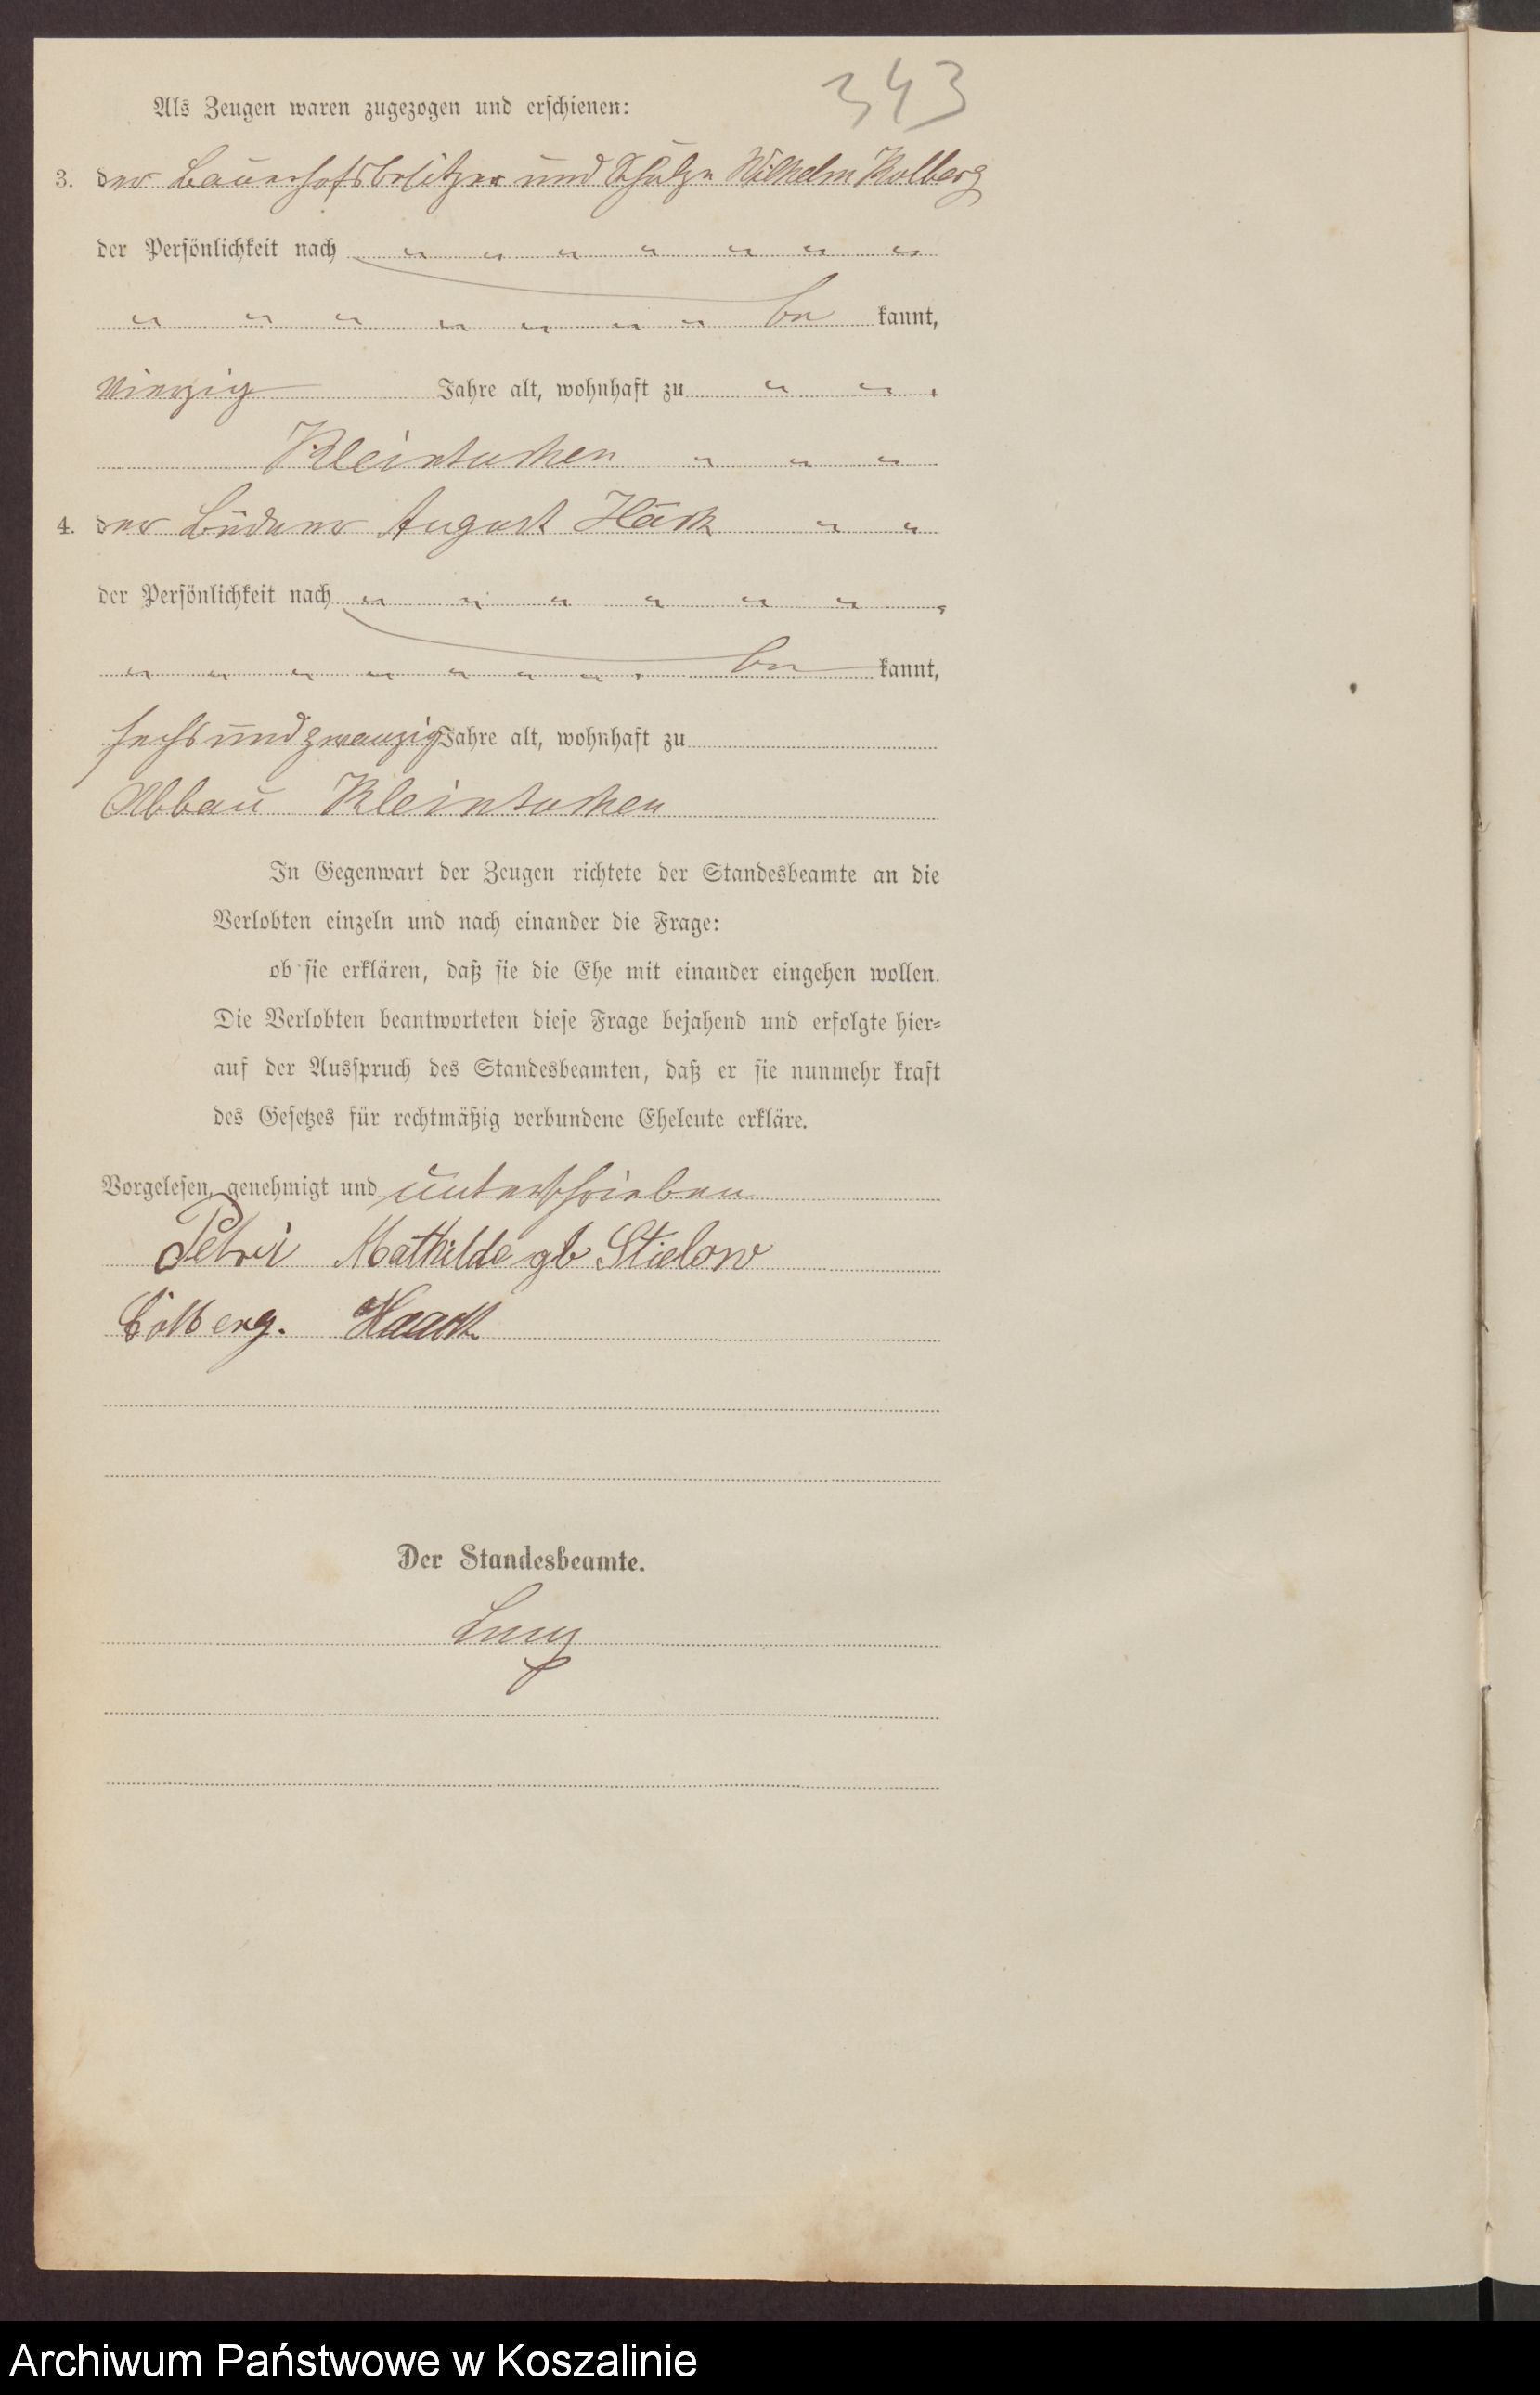 343
Als Zeugen waren zugezogen und erschienen:
3. der Bauerhofsbesitzer und Schulze Wilhelm Kolberg
der Persönlichkeit nach " " " " " " "
" " " " " " " be kannt,
vierzig Jahre alt, wohnhaft zu " " "
Kleintuchen " " "
4. der Büdner August Häck " "
der Persönlichkeit nach " " " " " " "
" " " " " " " " be kannt,
sechsundzwanzig Jahre alt, wohnhaft zu
Abbau Kleintuchen
In Gegenwart der Zeugen richtete der Standesbeamte an die
Verlobten einzeln und nach einander die Frage:
ob sie erklären, daß sie die Ehe mit einander eingehen wollen.
Die Verlobten beantworteten diese Frage bejahend und erfolgte hier=
auf der Ausspruch des Standesbeamten, daß er sie nunmehr kraft
des Gesetzes für rechtmäßig verbundene Eheleute erkläre.
Vorgelesen, genehmigt und unterschrieben
Petri Mathilde gb Stielow
Kolberg. Haack
Der Standesbeamte.
Archiwum Państwowe w Koszalinie